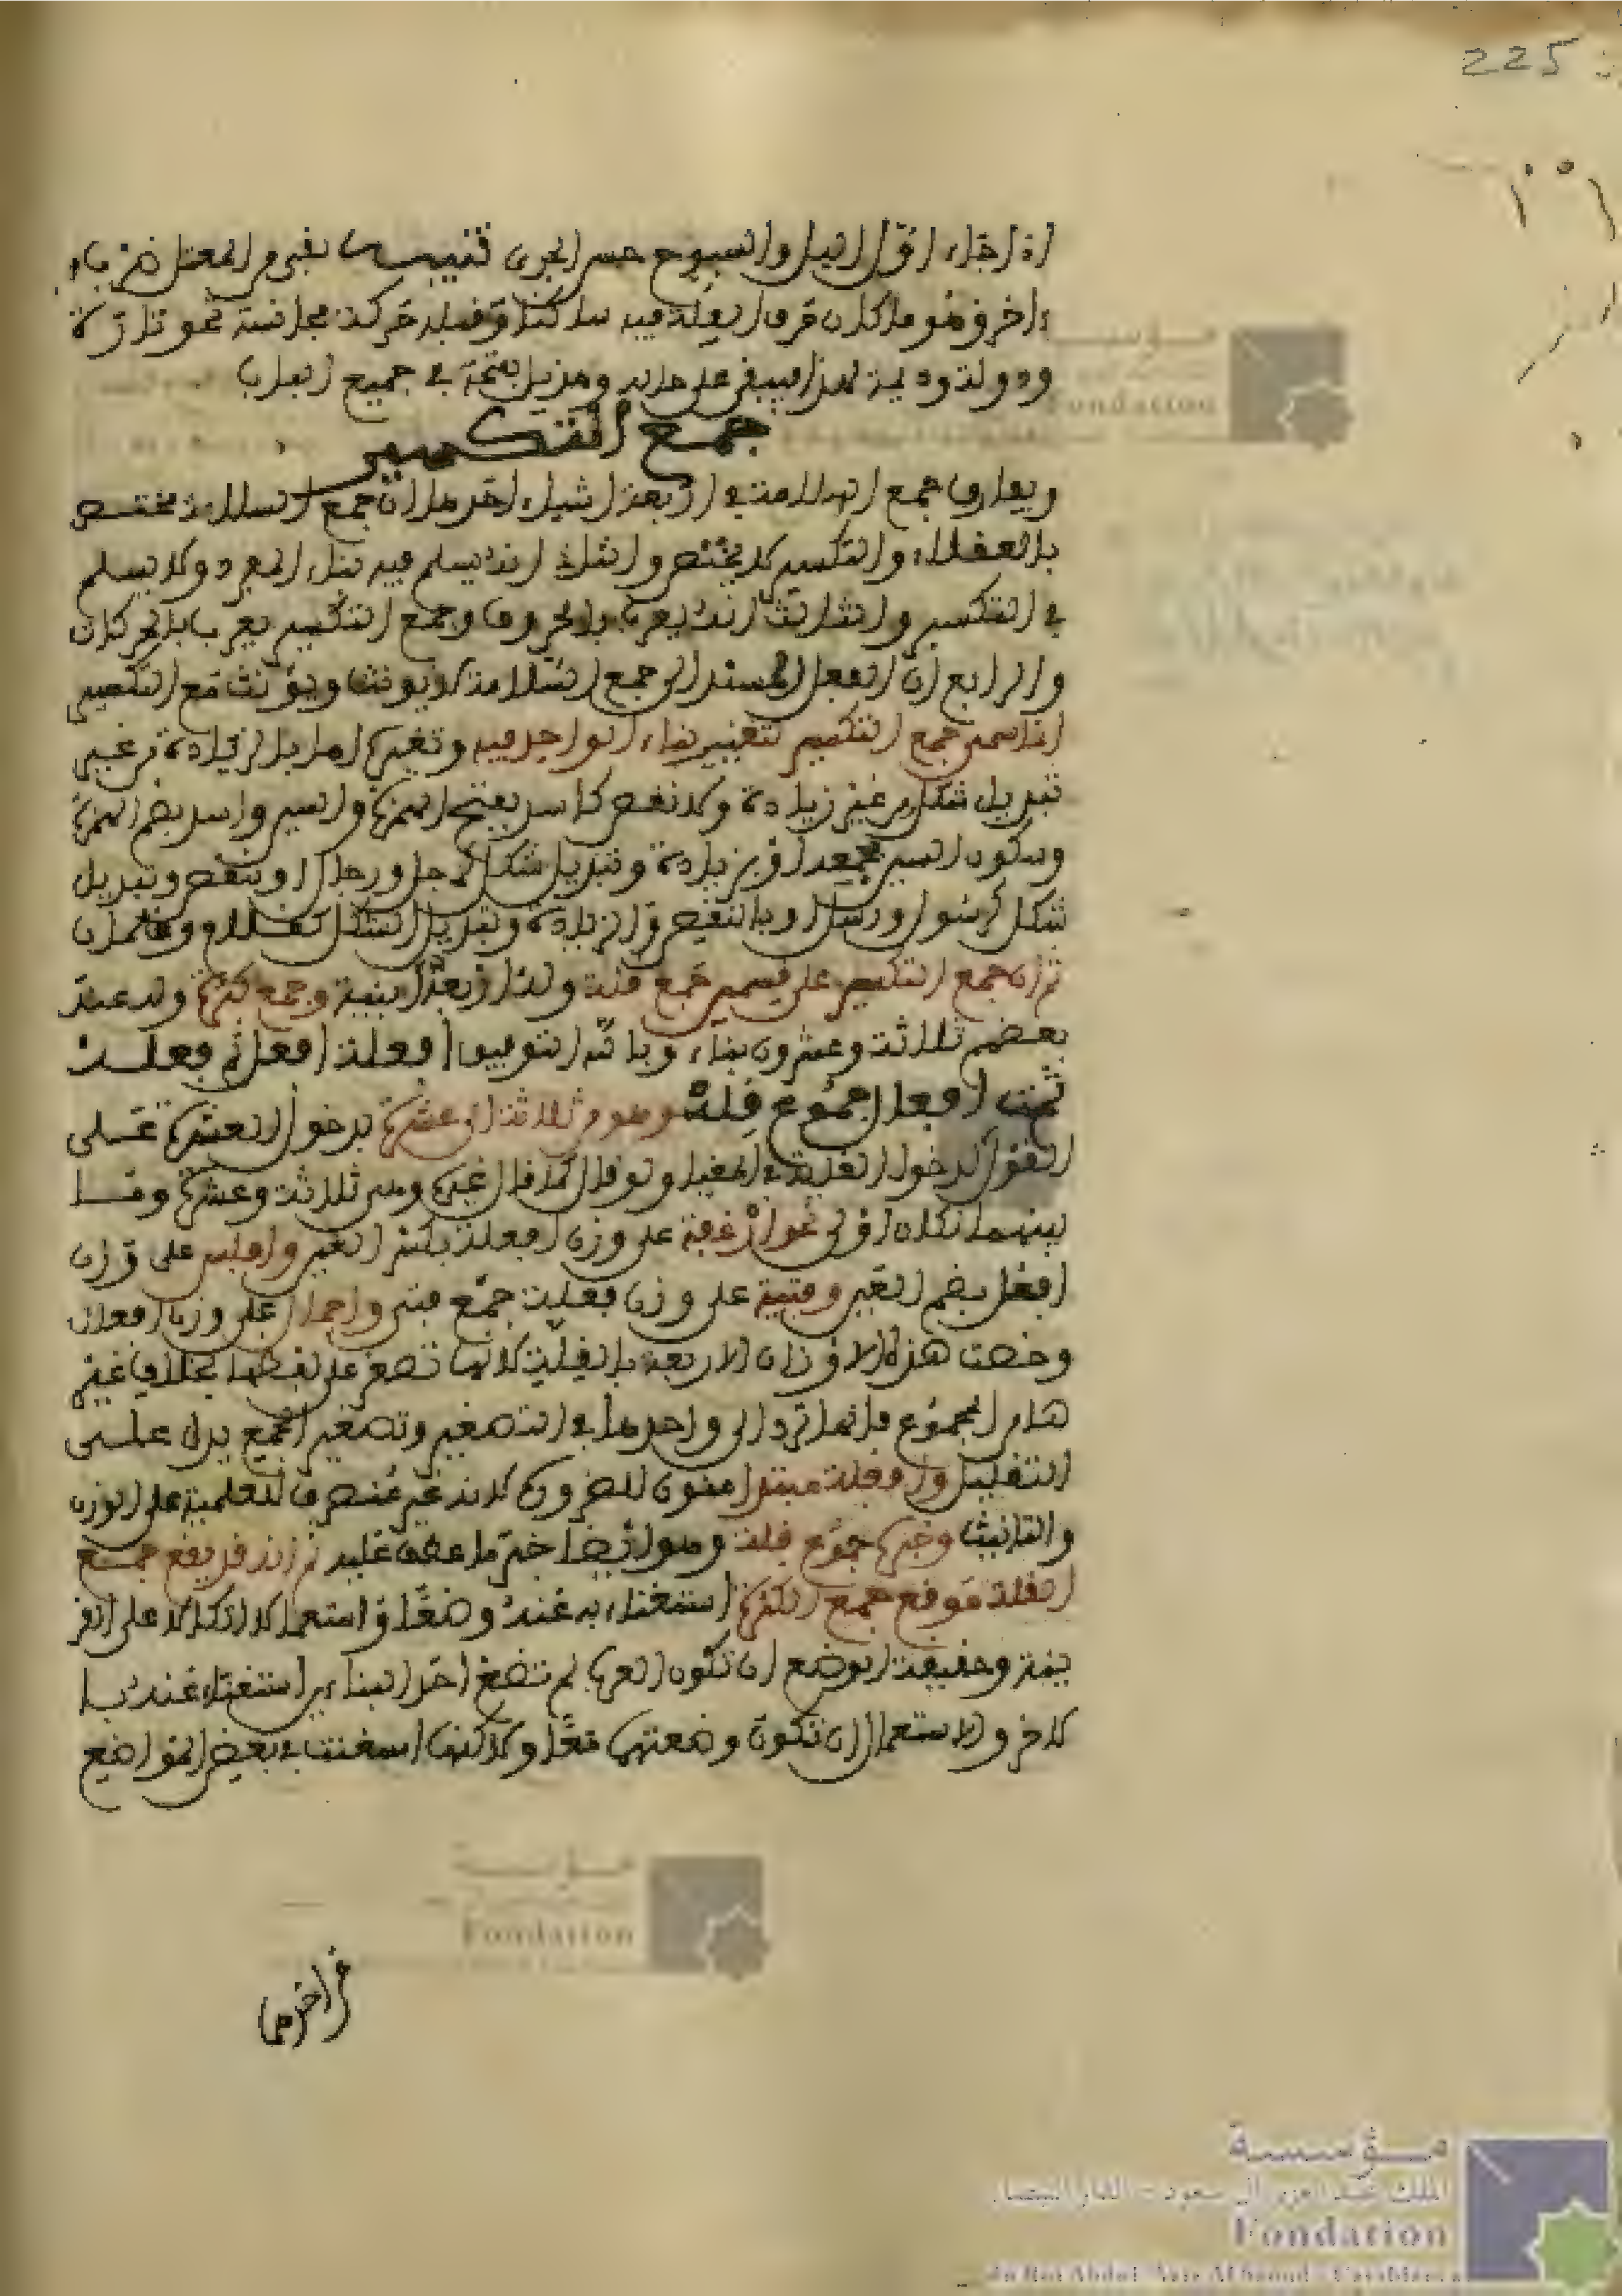 225
اذا جاء اول الليل والسبوح حسن الجري تنبيه بقي من المعتل ضرب
ءاخر وهو ما كان حرف العلة فيه ساكنا وقبله حركة مجانسة نحو تارة
ودولة وديمة هذا يبقى على حاله وهذيل بفتحه في جميع الباب
جمع التكسير
ويفارق جمع السلامة في اربعة اشياء احدها ان جمع السلامة مختص
بالعقلاء والتكسير لا يختص والثاني انه يسلم فيه بناء المفرد ولا يسلم
في التكسير والثالث انه يعرب بالحروف وجمع التكسير يعرب بالحركات
والرابع ان الفعل المسند الى جمع السلامة لا يونث ويؤنث مع التكسير
انما سمي جمع التكسير لتغيير بناء الواحد فيه وتغيره اما بالزيادة من غير
تبديل شكل من غير زيادة ولا نقص كاسد بفتح الهمزة والسين واسد بضم الهمزة
وسكون السين جمعه او بزيادة وتبديل شكل كرجل ورجال او بنقص وتبديل
شكل كرسول ورسل او بالنقص والزيادة وتبديل الشكل كغلام وغلمان
ثم ان جمع التكسير على قسمين جمع قلة وله اربعة ابنية وجمع كثرة وله عند
بعضهم ثلاثة وعشرون بناء وباته التوفيق افعلة افعل ثم فعله
ثمت افعال جموع قله وهو من ثلاثة الى عشرة بدخول العشرة على
القول بدخول الغاية في المغيا ولو قال كما قال غيره ومن ثلاثة وعشرة وما
بينهما لكان اولى نحو ارغفة على وزن افعلة بكسر العين وافلس على وزن
افعل بضم العين وفتية على وزن فعلة جمع فتى واحمال على وزن افعال
وخصت هذه الاوزان الاربعة بالقلة لانها تصغر على لفظها بخلاف غير
هذه الجموع فانها ترد الى واحدها في التصغير وتصغير الجمع يدل على
التقليل وافعلة مبتدا منون للضرورة لانه غير منصرف للعلمية على الوزن
والتانيث وخبره جموع قلة وهو ايضا خبر ما عطف عليه ثم انه قد يقع جمع
القلة موقع جمع الكثرة استغناء به عنه وضعا او استعمالا اتكالا على القر
ينة وحقيقة الوضع ان تكون العرب لم تضع احد البناءين استغناء عنه با
لاخر والاستعمال ان تكون وضعتهما معا ولاكنها استغنت في بعض المواضع
مؤسسة
الملك عبد العزيز آل سعود - الدار البيضاء
Fondation
du Roi Abdul-Aziz Al Saoud - Casablanca